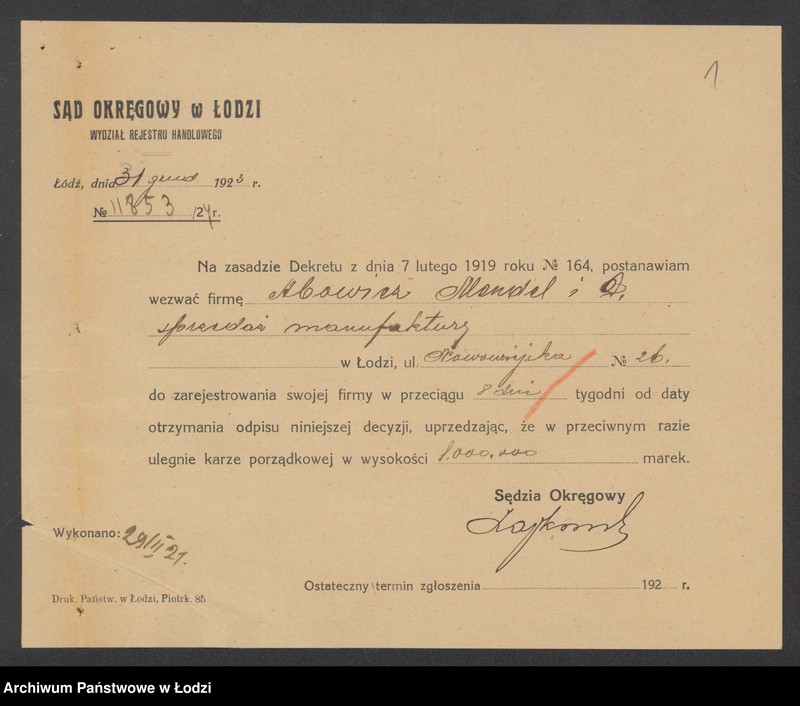 1
SĄD OKRĘGOWY w ŁODZI
WYDZIAŁ REJESTRU HANDLOWEGO
Łódź, dnia 31 grud. 1923 r.
№ 11853 /24 r.
Na zasadzie Dekretu z dnia 7 lutego 1919 roku № 164, postanawiam
wezwać firmę Abowicz Mendel i
sprzedaż manufaktury
w Łodzi, ul. № 26.
do zarejestrowania swojej firmy w przeciągu 8 dni tygodni od daty
otrzymania odpisu niniejszej decyzji, uprzedzając, że w przeciwnym razie
ulegnie karze porządkowej w wysokości 1.000.000 marek.
Sędzia Okręgowy
Wykonano: 29/II 24.
Ostateczny termin zgłoszenia 192 r.
Druk. Państw. w Łodzi, Piotrk. 85
Archiwum Państwowe w Łodzi